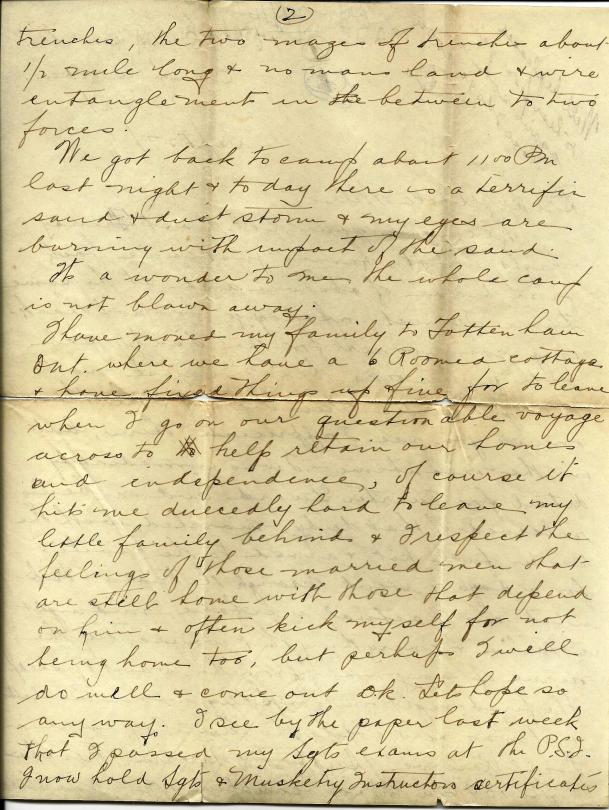 (2)
trenches, the two mazes of trenches about
1/2 mile long & no mans land & wire
entanglement in the between to two
forces.
We got back to camp about 11 00 Pm
last night & to day there is a terrific
sand & dust storm & my eyes are
burning with impact of the sand.
Its a wonder to me the whole camp
is not blown away.
I have moved my family to Tottenham
Ont. where we have a 6 Roomed cottage
& have fixed things up fine for to leave
when I go on our questionable voyage
across to help retain our homes
and independence, of course it
hits me duecedly hard to leave my
little family behind & I respect the
feelings of those married men that
are still home with those that depend
on him & often kick myself for not
being home too, but perhaps I will
do well & come out O.K. Lets hope so
any way. I see by the paper last week
that I passed my Sgts exams at the P.S.I.
I now hold Sgts & Musketry Instructors certificates